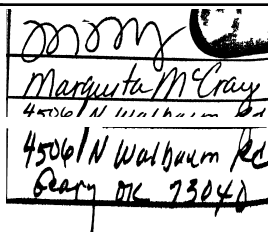 Marquita McCray
4506 N Walbaum Rd
4506 N Walbaum Rd
Geary OK 73040